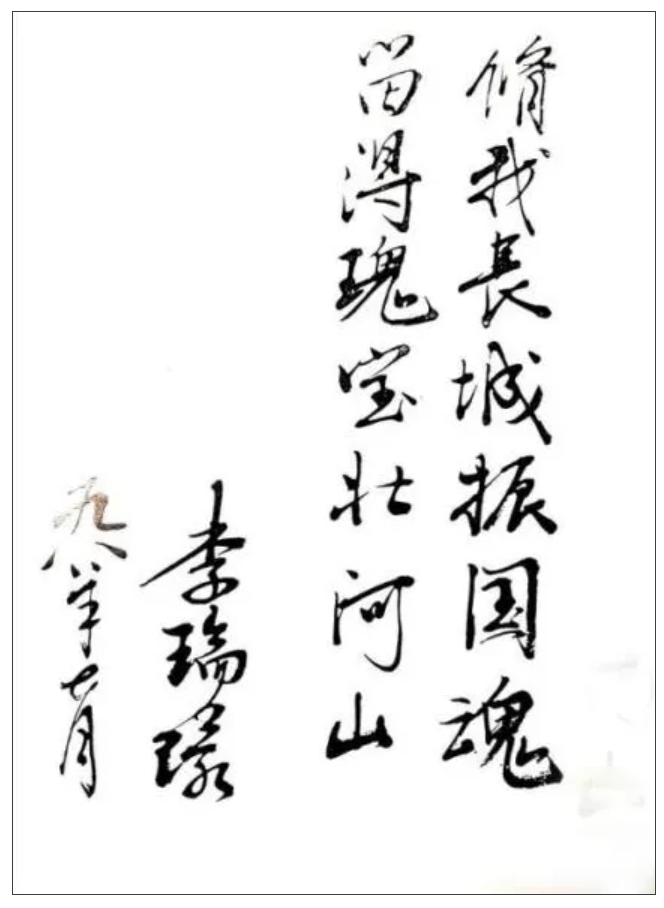 脩我長城振国魂
留得瑰宝壮河山
李瑞環
九八年七月